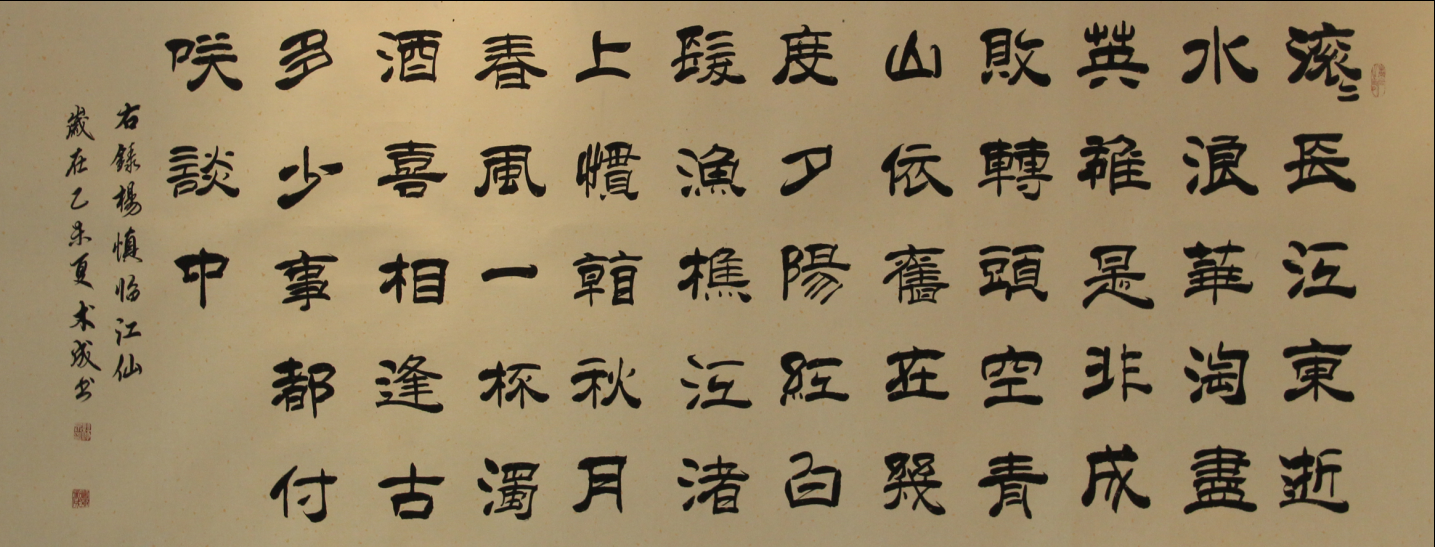 滚〻長江東逝
水浪華淘盡
英雄是非成
敗轉頭空青
山依舊在幾
度夕陽紅白
髮漁樵江渚
上慣看秋月
春風一杯濁
酒喜相逢古
多少事都付
咲談中
右録楊慎临江仙
歲在乙未夏术成书